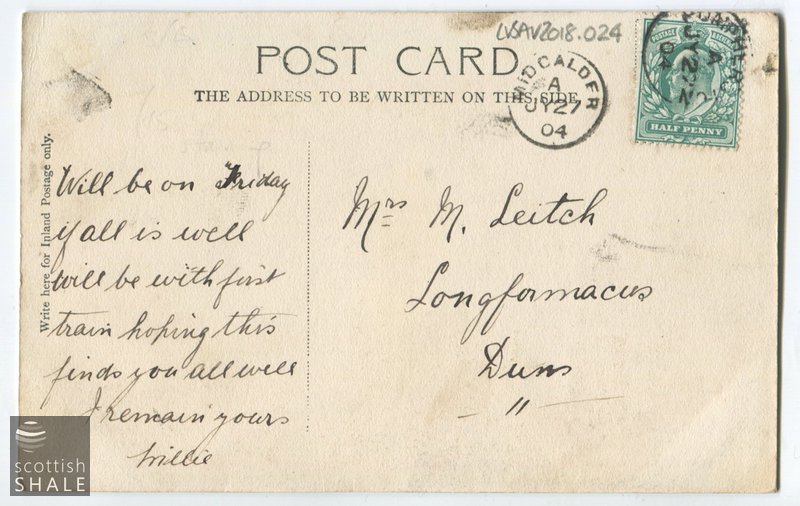 LVSAV2018.024
POST CARD
THE ADDRESS TO BE WRITTEN ON THIS SIDE
MIDCALDER
A
JY 27
04
A
JY 27
04
POSTAGE
HALF PENNY
Write here for Inland Postage only.
Will be on Friday
if all is well
will be with first
train hoping this
finds you all well
I remain yours
Willie
Mrs M. Leitch
Longformacus
Duns
"
scottish
SHALE